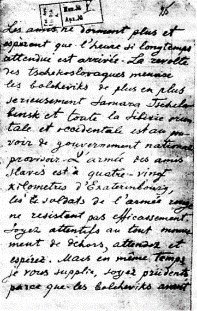 25
Les amis ne dorment plus et
espèrent que l'heure si longtemps
attendue est arrivée. La revolte
des tschekoslovaques menace
les bolcheviks de plus en plus
serieusement. Samara, Tschelia
binsk et toute la Sibirie orien
tale et occidentale est au pou
voir de gouvernement national
provisoir. L'armée des amis
slaves est à quatre-vingt
kilometres d'Ekaterinbourg,
les soldats de l'armée rouge
ne resistent pas efficassement.
Soyez attentifs au tout mouve
ment de dehors, attendez et
esperez. Mais en même temps,
je vous supplie, soyez prudents
parce que les bolcheviks avant